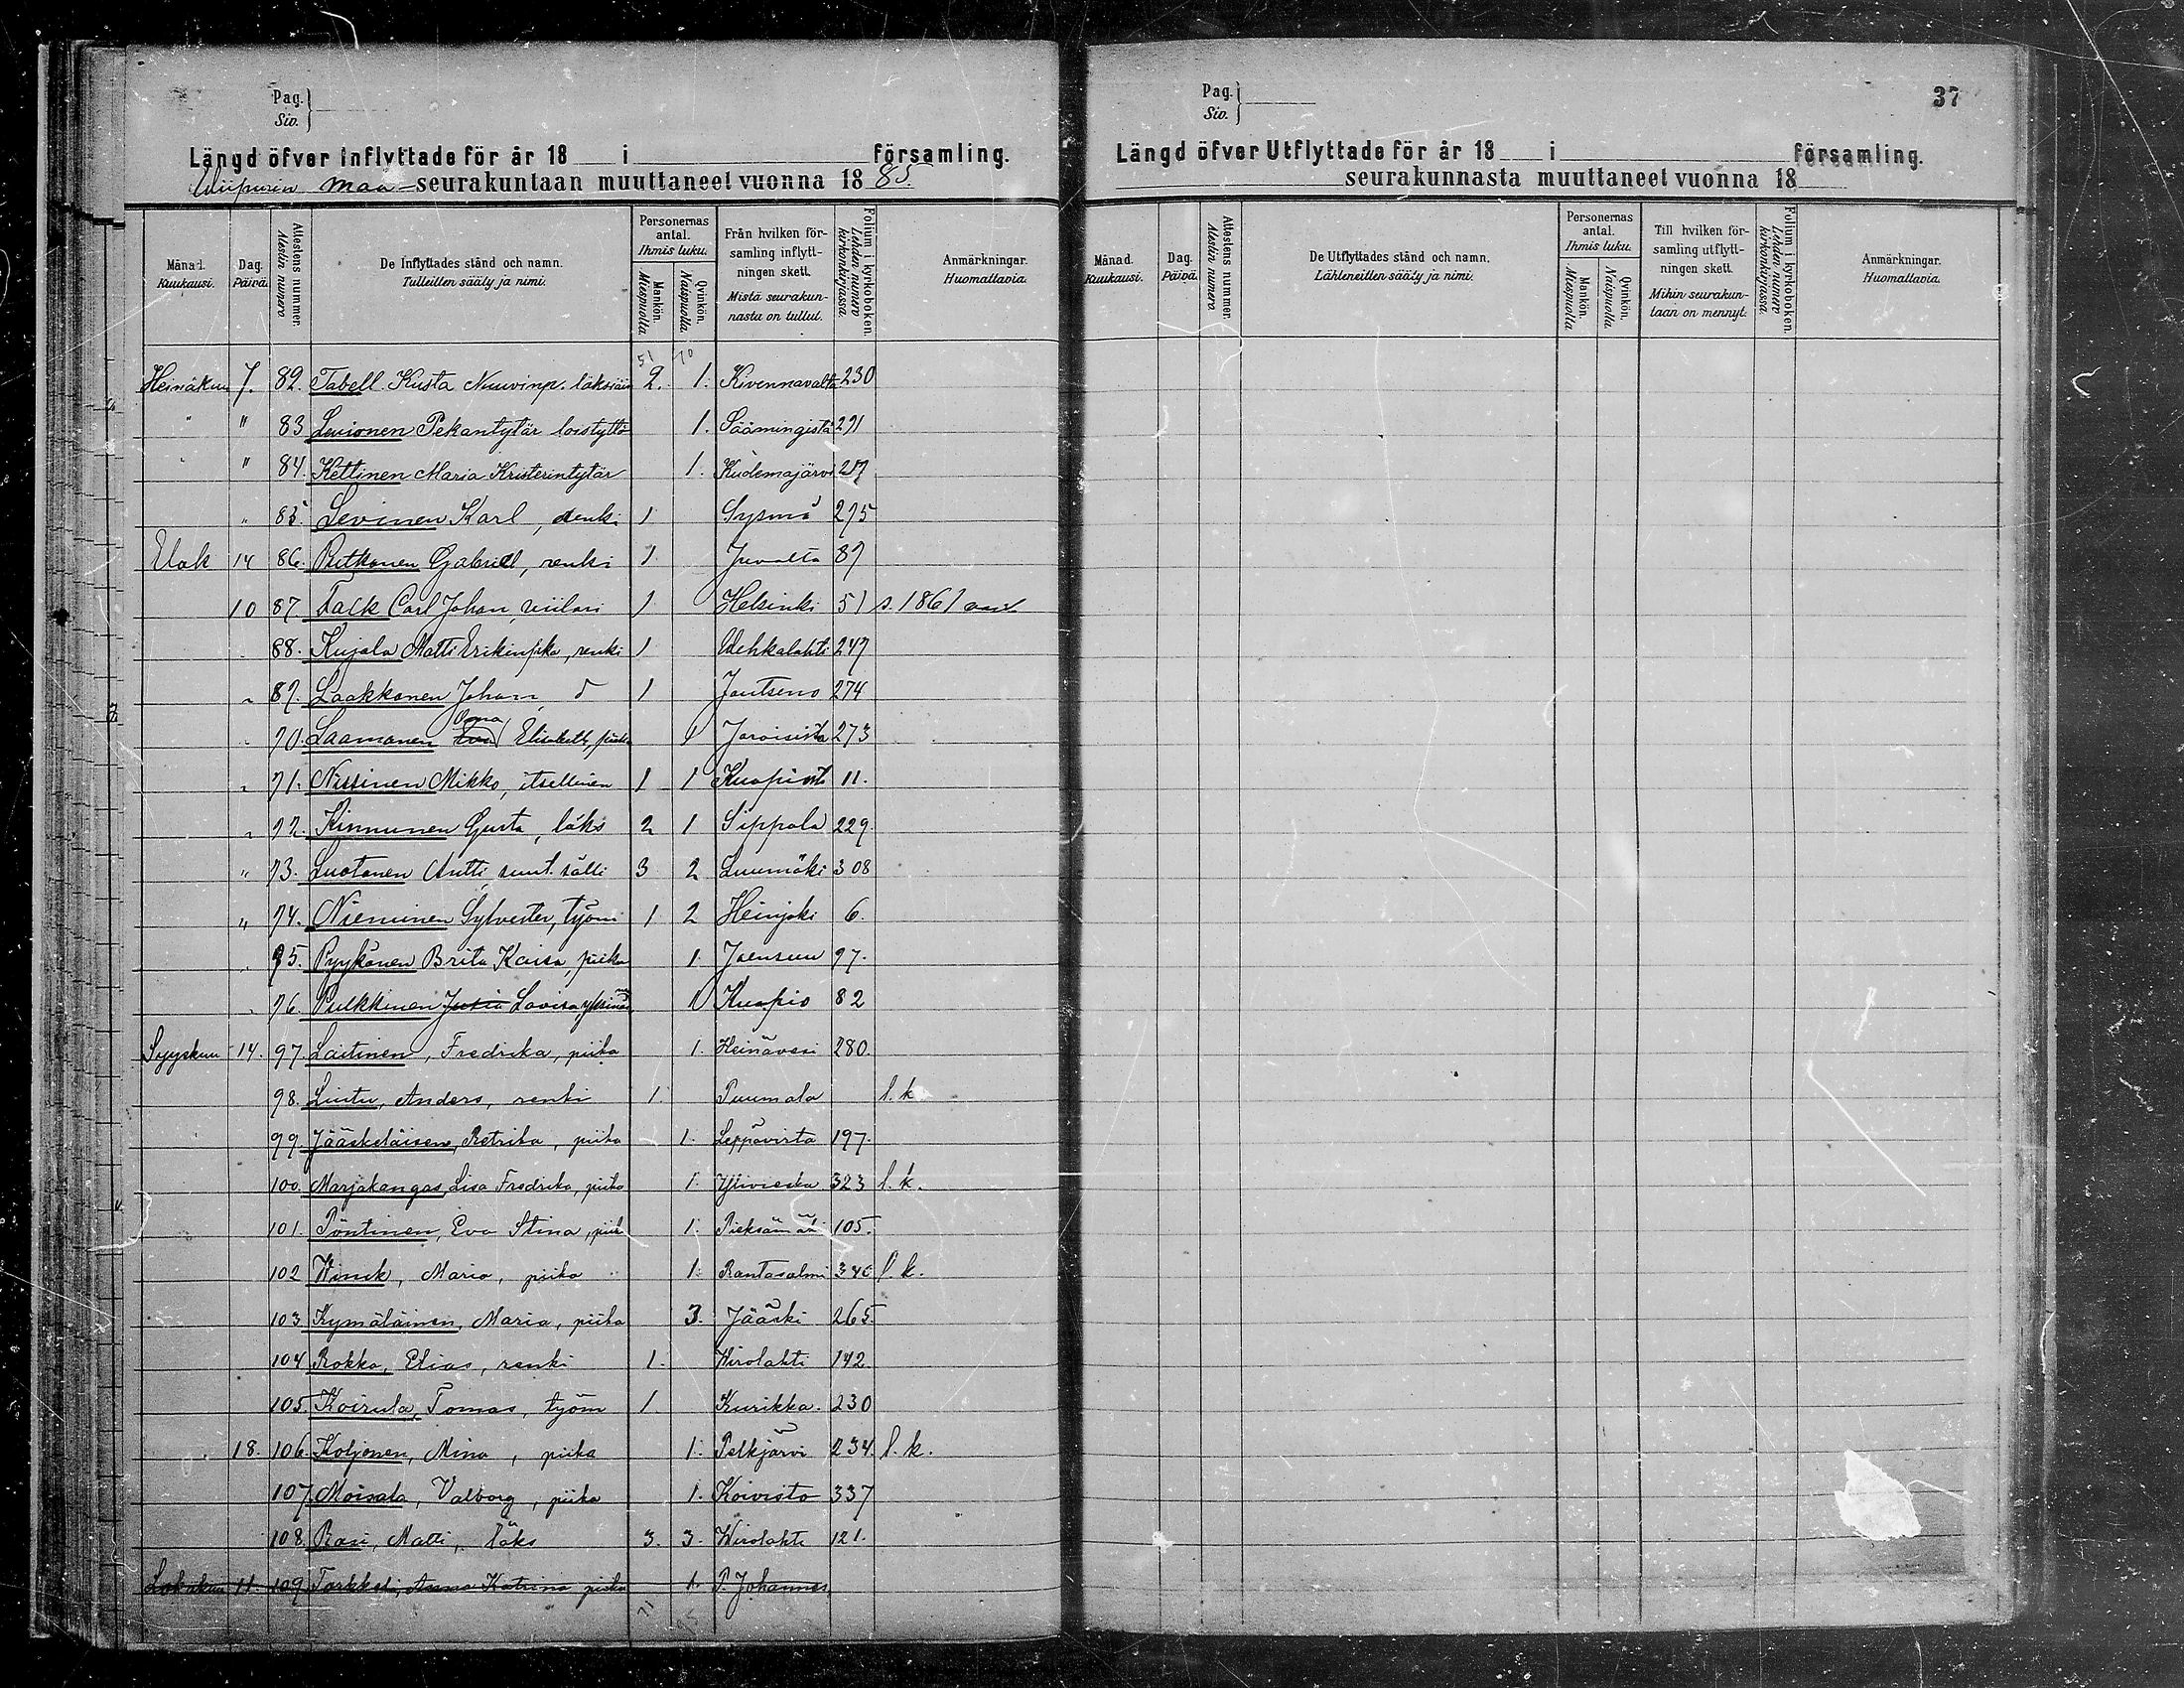 Pag.
Siv.
Längd öfver Inflyttade för år 18 i församling.
Wiipurin maa-seurakuntaan muuttaneet vuonna 1885.
Månad. Kuukausi.
Dag. Päivä.
Attestens nummer. Atestin numero
De Inflyttades stånd och namn. Tulleitten sääty ja nimi.
Personernas antal. Ihmis luku.
Mankön. Miespuolia
Qvinkön. Naispuolia
Från hvilken församling inflyttningen skett. Mistä seurakunnasta on tullut.
Folium i kyrkoboken. Lehden numero kirkonkirjassa.
Anmärkningar. Huomattavia.
51 70
Heinäkuu 7. 82. Tabell Kusta 2. 1. Kivennavalta 230
" " 83 Pekantytär loistyttö 1. Säämingistä 291
" " 84. Kettinen Maria Kristerintytär 1. Kudemajärvi 217
" 85 Levinen Karl, renki 1 Sysmä 275
Elok 14 86. Putkonen Gabriel, renki 1 Juvalta 87
10 87 Falk Carl Johan, viilari 1 Helsinki 51 s. 1861
88. Kujala Matti Erikinpka, renki 1 Wehkalahti 247
" 89. Laakkonen Johan, d 1 Joutseno 274
" 90. Laamanen Anna Elisabeth, piika 1 Joroisista 273
" 91. Nissinen Mikko, itsellinen 1 1 Kuopiost 11.
" 92. Kinnunen Gusta, läks 2 1 Sippola 229.
" 93. Luotonen Antti, suut. sälli 3 2 Luumäki 308
" 94. Nieminen Sylvester, työm 1 2 Heinjoki 6.
" 95. Pyykönen Brita Kaisa, piika 1 Joensuu 97.
" 96. Pulkkinen Lovisa 1 Kuopio 82
Syyskuu 14. 97. Laitinen, Fredrika, piika 1. Heinävesi 280.
98. Lintu, Anders, renki 1. Puumala l. k.
99. Jääskeläinen, Retrika, piika 1. Leppävirta 197.
100. Marjakangas, Lisa Fredrika, piika 1. Ylivieska 323 l. k.
101. Pöntinen, Eva Stina, piik 1. Pieksämäki 105.
102 Winck, Maria, piika 1. Rantasalmi 340 l. k.
103 Kymäläinen, Maria, piika 3. Jääski 265.
104 Rokka, Elias, renki 1. Wirolahti 142.
105. Koirula, Tomas, työm 1. Kurikka. 230
18. 106. Koljonen, Mina, piika 1. Pelkjärvi 234. l. k.
107. Moisala, Valborg, piika 1. Koivisto 337
108. Rasi, Matti, läks 3. 3. Wirolahti 121.
Lokakuu 11. 109. Tarkkeli, Anna Katrina piika 1. P. Johannes
71 95
Pag.
Siv.
37
Längd öfver Utflyttade för år 18 i församling.
seurakunnasta muuttaneet vuonna 18
Månad. Kuukausi.
Dag. Päivä.
Attestens nummer. Atestin numero
De Utflyttades stånd och namn. Lähteneitten sääty ja nimi.
Personernas antal. Ihmis luku.
Mankön. Miespuolia
Qvinkön. Naispuolia
Till hvilken församling utflyttningen skett. Mihin seurakuntaan on mennyt.
Folium i kyrkoboken. Lehden numero kirkonkirjassa.
Anmärkningar. Huomattavia.